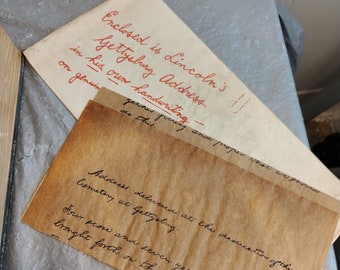 Enclosed is Lincoln's
Gettysburg Address
in his own handwriting -
on genuine
!!
and proper that
as this
Address delivered at the dedication of the
Cemetery at Gettysburg.
Four score and seven
brought forth on th